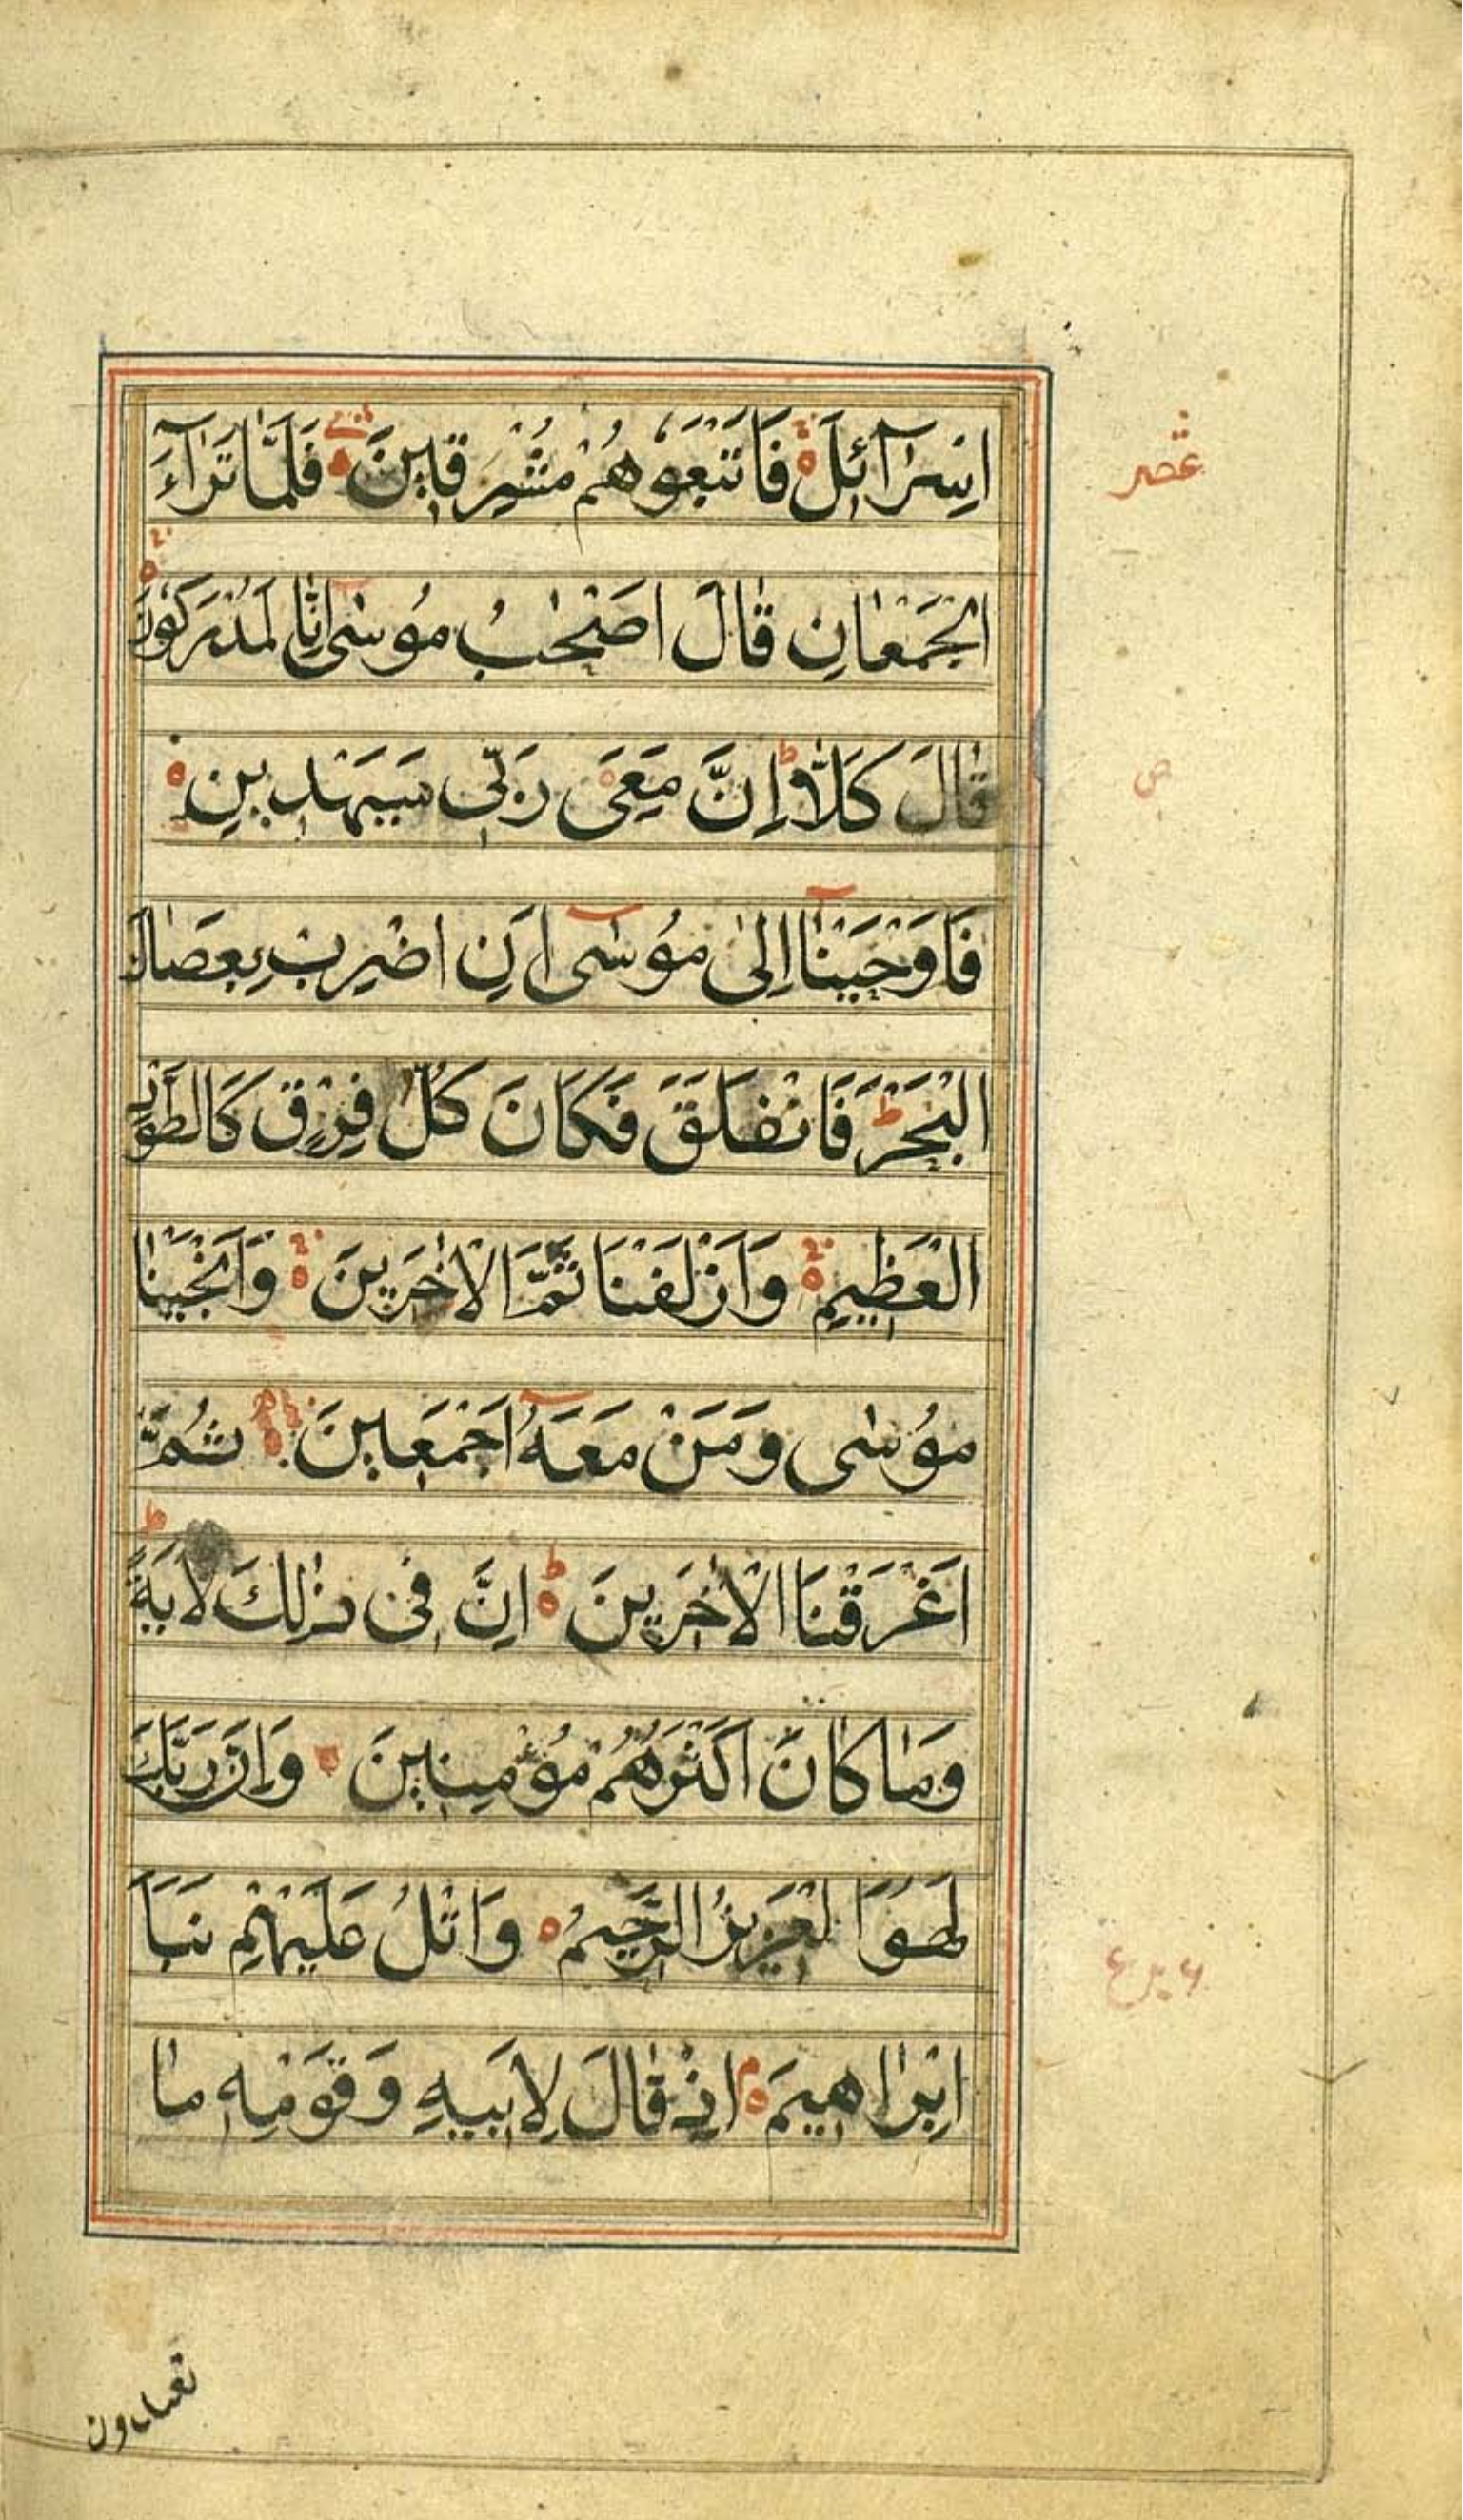 اِسْرَآئِلَ فَاَتْبَعُوهُمْ مُشْرِقِينَ فَلَمَّا تَرَاءَ
الْجَمْعَانِ قَالَ اَصْحٰبُ مُوسٰى اِنَّا لَمُدْرَكُونَ
قَالَ كَلَّا اِنَّ مَعِىَ رَبّى سَيَهْدِينِ
فَاَوْحَيْنَا اِلىٰ مُوسٰى اَنِ اضْرِبْ بِعَصَاكَ
الْبَحْرَ ط فَانْفَلَقَ فَكَانَ كُلُّ فِرْقٍ كَالطَّوْدِ
الْعَظِيمِ وَاَزْلَفْنَا ثَمَّ الْاٰخَرِينَ وَاَنْجَيْنَا
مُوسٰى وَمَنْ مَعَهُ اَجْمَعِينَ ثُمَّ
اَغْرَقْنَا الْاٰخَرِينَ ط اِنَّ فِى ذٰلِكَ لَاٰيَةً ط
وَمَا كَانَ اَكْثَرُهُمْ مُؤْمِنِينَ وَاِنَّ رَبَّكَ
لَهُوَ الْعَزِيزُ الرَّحِيمُ وَاتْلُ عَلَيْهِمْ نَبَاَ
اِبْرَاهِيمَ م اِذْ قَالَ لِاَبِيهِ وَقَوْمِهِ مَا
تعبدون